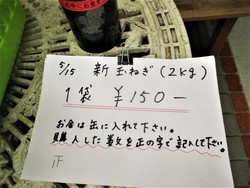 5/15 新玉ねぎ(2kg)
1袋 ¥150-
お金は缶に入れて下さい。
購入した数を正の字で記入して下さい。
正